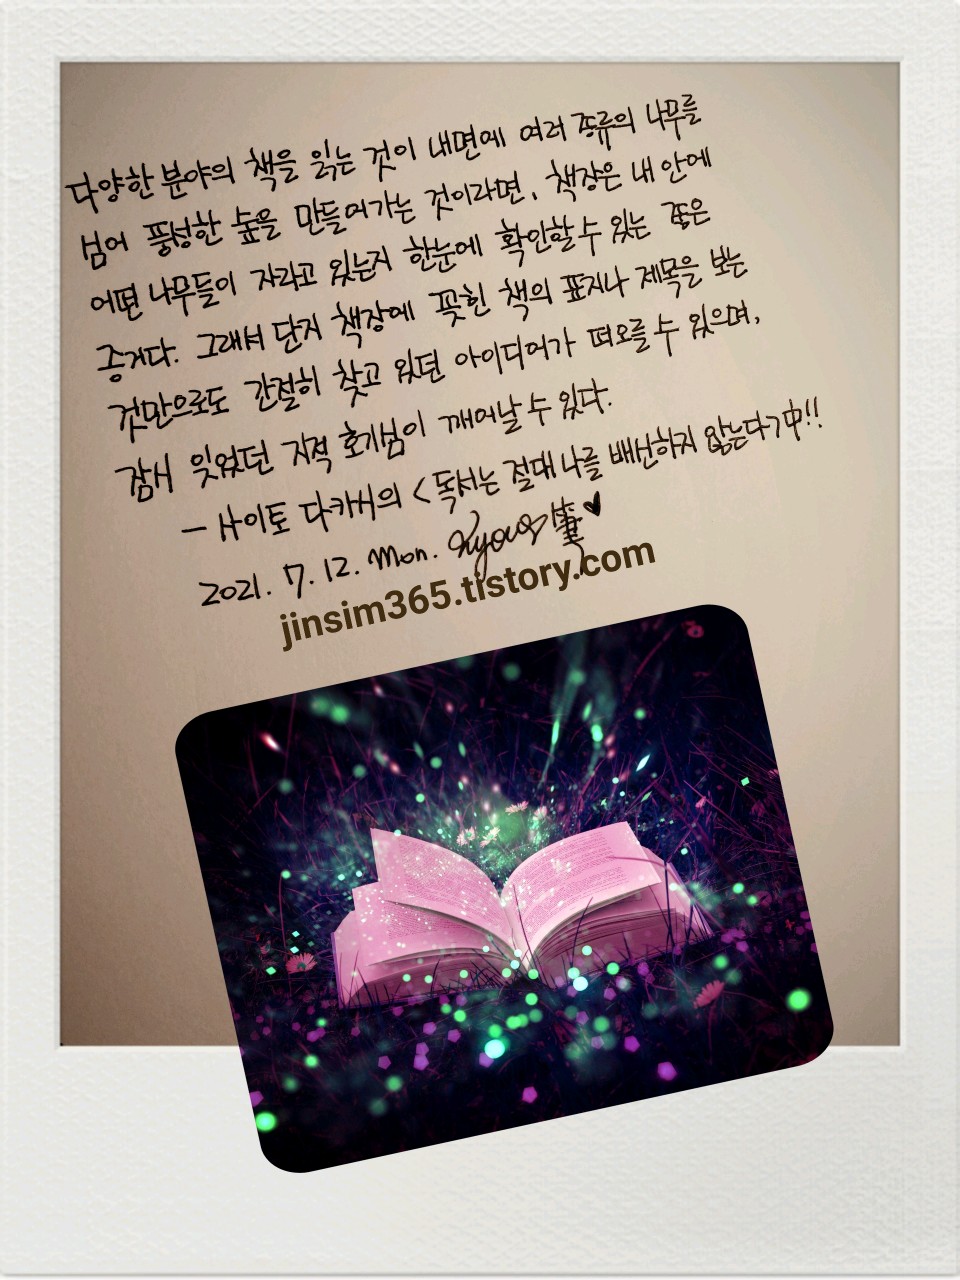 다양한 분야의 책을 읽는 것이 내면에 여러 종류의 나무를
심어 풍성한 숲을 만들어가는 것이라면, 책장은 내 안에
어떤 나무들이 자라고 있는지 한눈에 확인할 수 있는 좋은
증거다. 그래서 단지 책장에 꽂힌 책의 표지나 제목을 보는
것만으로도 간절히 찾고 있던 아이디어가 떠오를 수 있으며,
잠시 잊었던 지적 호기심이 깨어날 수 있다.
- 사이토 다카시의 <독서는 절대 나를 배신하지 않는다> 中!!
2021. 7. 12. Mon.
jinsim365.tistory.com